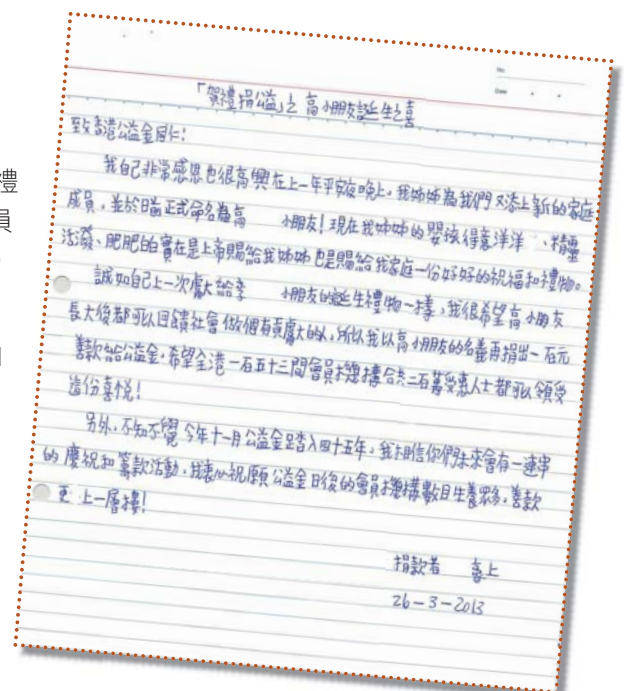 禮
員
No.
Date
「賀禮捐公益」之 高小朋友誕生之喜
致香港公益金同仁:
我自己非常感恩也很高興在上一年平安夜晚上，我姊姊為我們又添上新的家庭
成員，並於日前正式命名為高 小朋友！現在我姊姊的嬰孩得意洋洋、精靈
活潑、肥肥白白實在是上帝賜給我姊姊也是賜給我家庭一份好好的祝福和禮物。
誠如自己上一次獻給李 小朋友的誕生禮物一樣，我很希望高小朋友
長大後都可以回饋社會做個有貢獻的人，所以我以高小朋友的名義再捐出一百元
善款給公益金，希望全港一百五十三間會員機構合共二百萬受惠人士都可以領受
這份喜悅！
另外，不知不覺今年十一月公益金踏入四十五年，我相信你們未來會有一連串
的慶祝和籌款活動，我衷心祝願公益金日後的會員機構數目生養眾多，善款
更上一層樓！
捐款者 上
26-3-2013